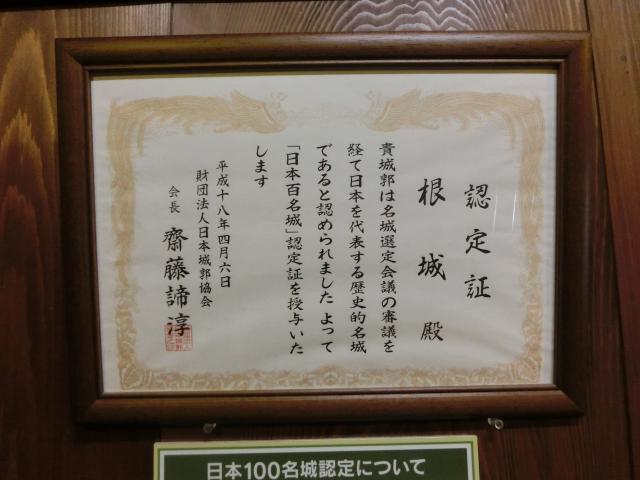 認定証
根城殿
貴城郭は名城選定会議の審議を
経て日本を代表する歴史的名城
であると認められました よって
「日本百名城」認定証を授与いた
します
平成十八年四月六日
財団法人日本城郭協会
会長 齋藤諦淳
日本100名城認定について